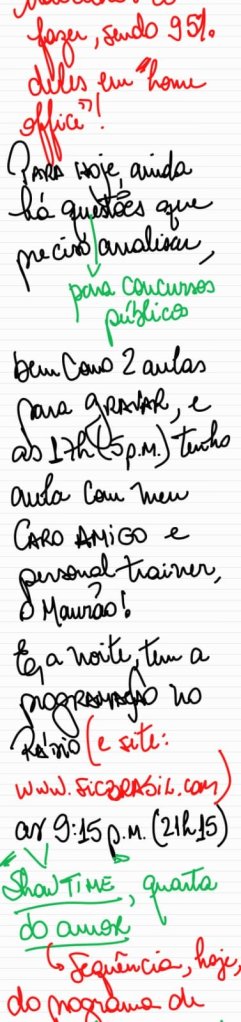 fazer, sendo 95%
deles em "home
office"!
PARA HOJE, ainda
há questões que
preciso analisar,
para concursos
públicos
bem como 2 aulas
para GRAVAR, e
às 17h (5 p.m.) tenho
aula com meu
CARO AMIGO e
personal trainer,
o Maurão!
E, a noite, tem a
PROGRAMAÇÃO no
RÁDIO (e site:
www.sicBRASIL.com)
as 9:15 p.m. (21h15)
"Show TIME", quarta
do amor
Sequência, hoje,
do programa de